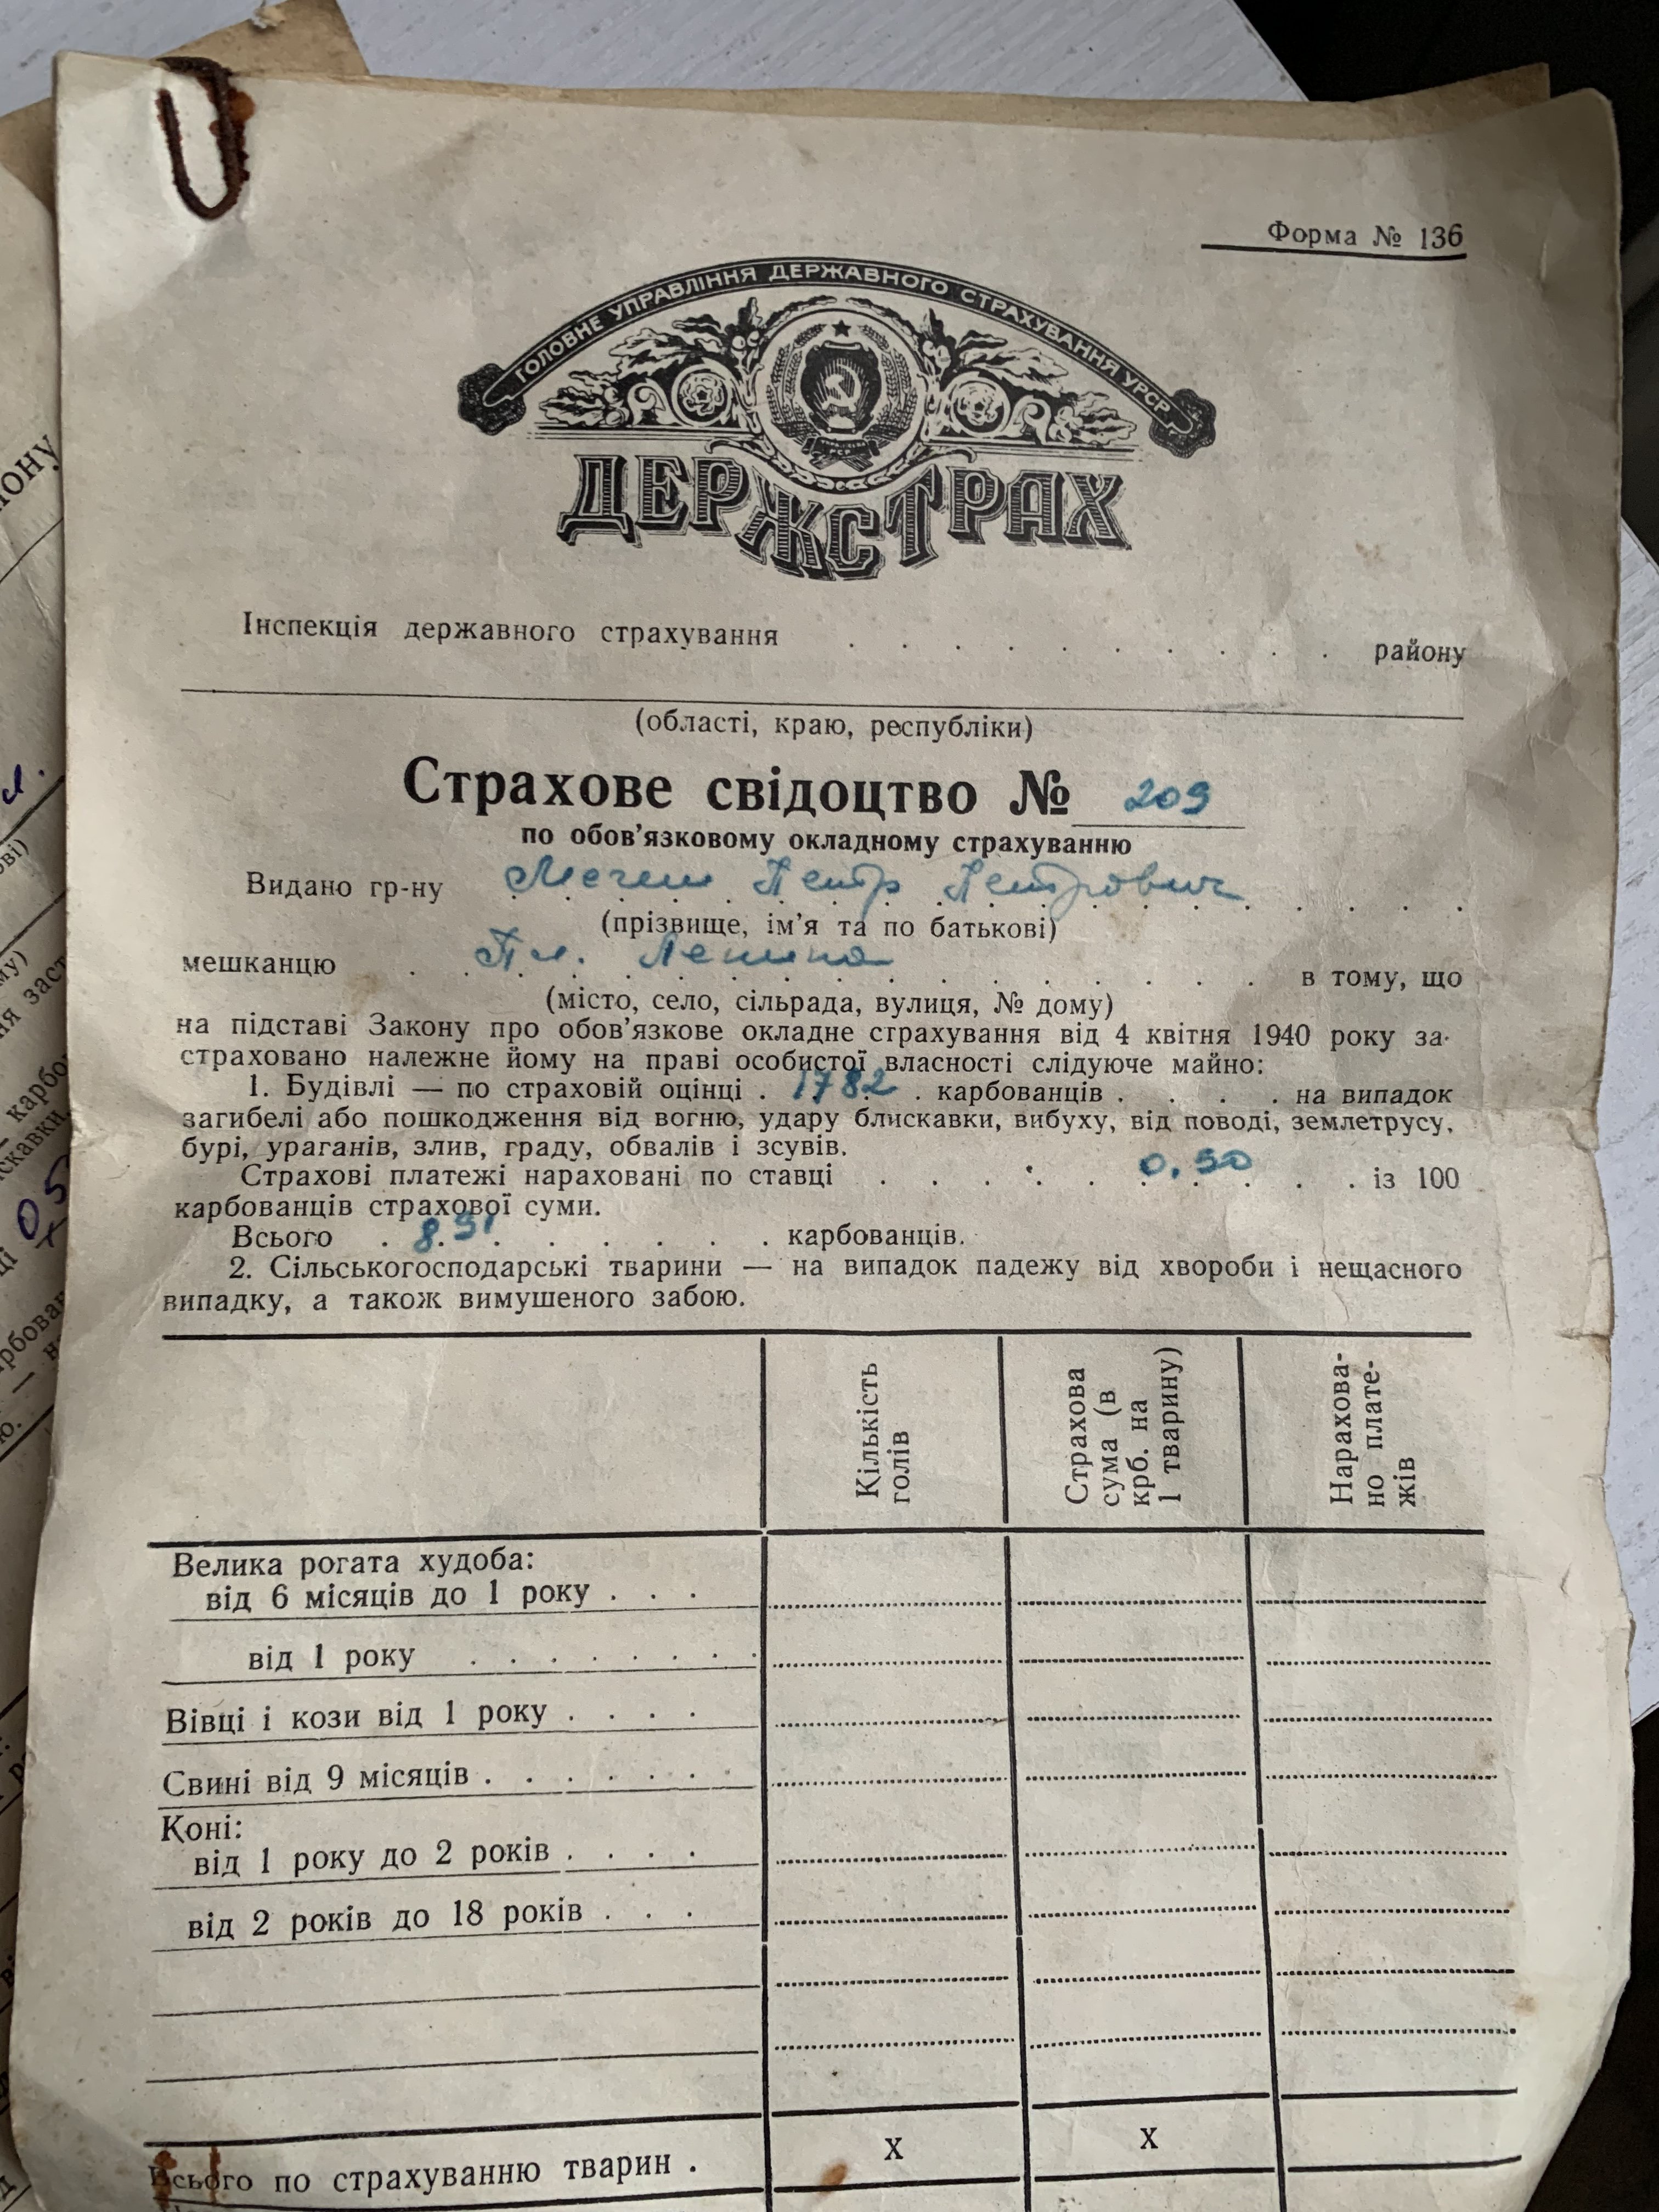 Форма № 136
ГОЛОВНЕ УПРАВЛІННЯ ДЕРЖАВНОГО СТРАХУВАННЯ УРСР
ДЕРЖСТРАХ
Інспекція державного страхування . . . . . . . . . . району
(області, краю, республіки)
Страхове свідоцтво № 209
по обов'язковому окладному страхуванню
Видано гр-ну Петр Петрович
(прізвище, ім'я та по батькові)
мешканцю Пл. Ленина в тому, що
(місто, село, сільрада, вулиця, № дому)
на підставі Закону про обов'язкове окладне страхування від 4 квітня 1940 року за-
страховано належне йому на праві особистої власності слідуюче майно:
1. Будівлі — по страховій оцінці . 1782 . карбованців . . . . на випадок
загибелі або пошкодження від вогню, удару блискавки, вибуху, від поводі, землетрусу,
бурі, ураганів, злив, граду, обвалів і зсувів.
Страхові платежі нараховані по ставці . . . . . 0.50 . . із 100
карбованців страхової суми.
Всього . 8.91 . . . . . карбованців.
2. Сільськогосподарські тварини — на випадок падежу від хвороби і нещасного
випадку, а також вимушеного забою.
Кількість голів
Страхова сума (в крб. на 1 тварину)
Нарахова-но плате-жів
Велика рогата худоба:
від 6 місяців до 1 року . . .
від 1 року . . . . . . . .
Вівці і кози від 1 року . . . .
Свині від 9 місяців . . . . . . .
Коні:
від 1 року до 2 років . . . .
від 2 років до 18 років . . .
Всього по страхуванню тварин . х х